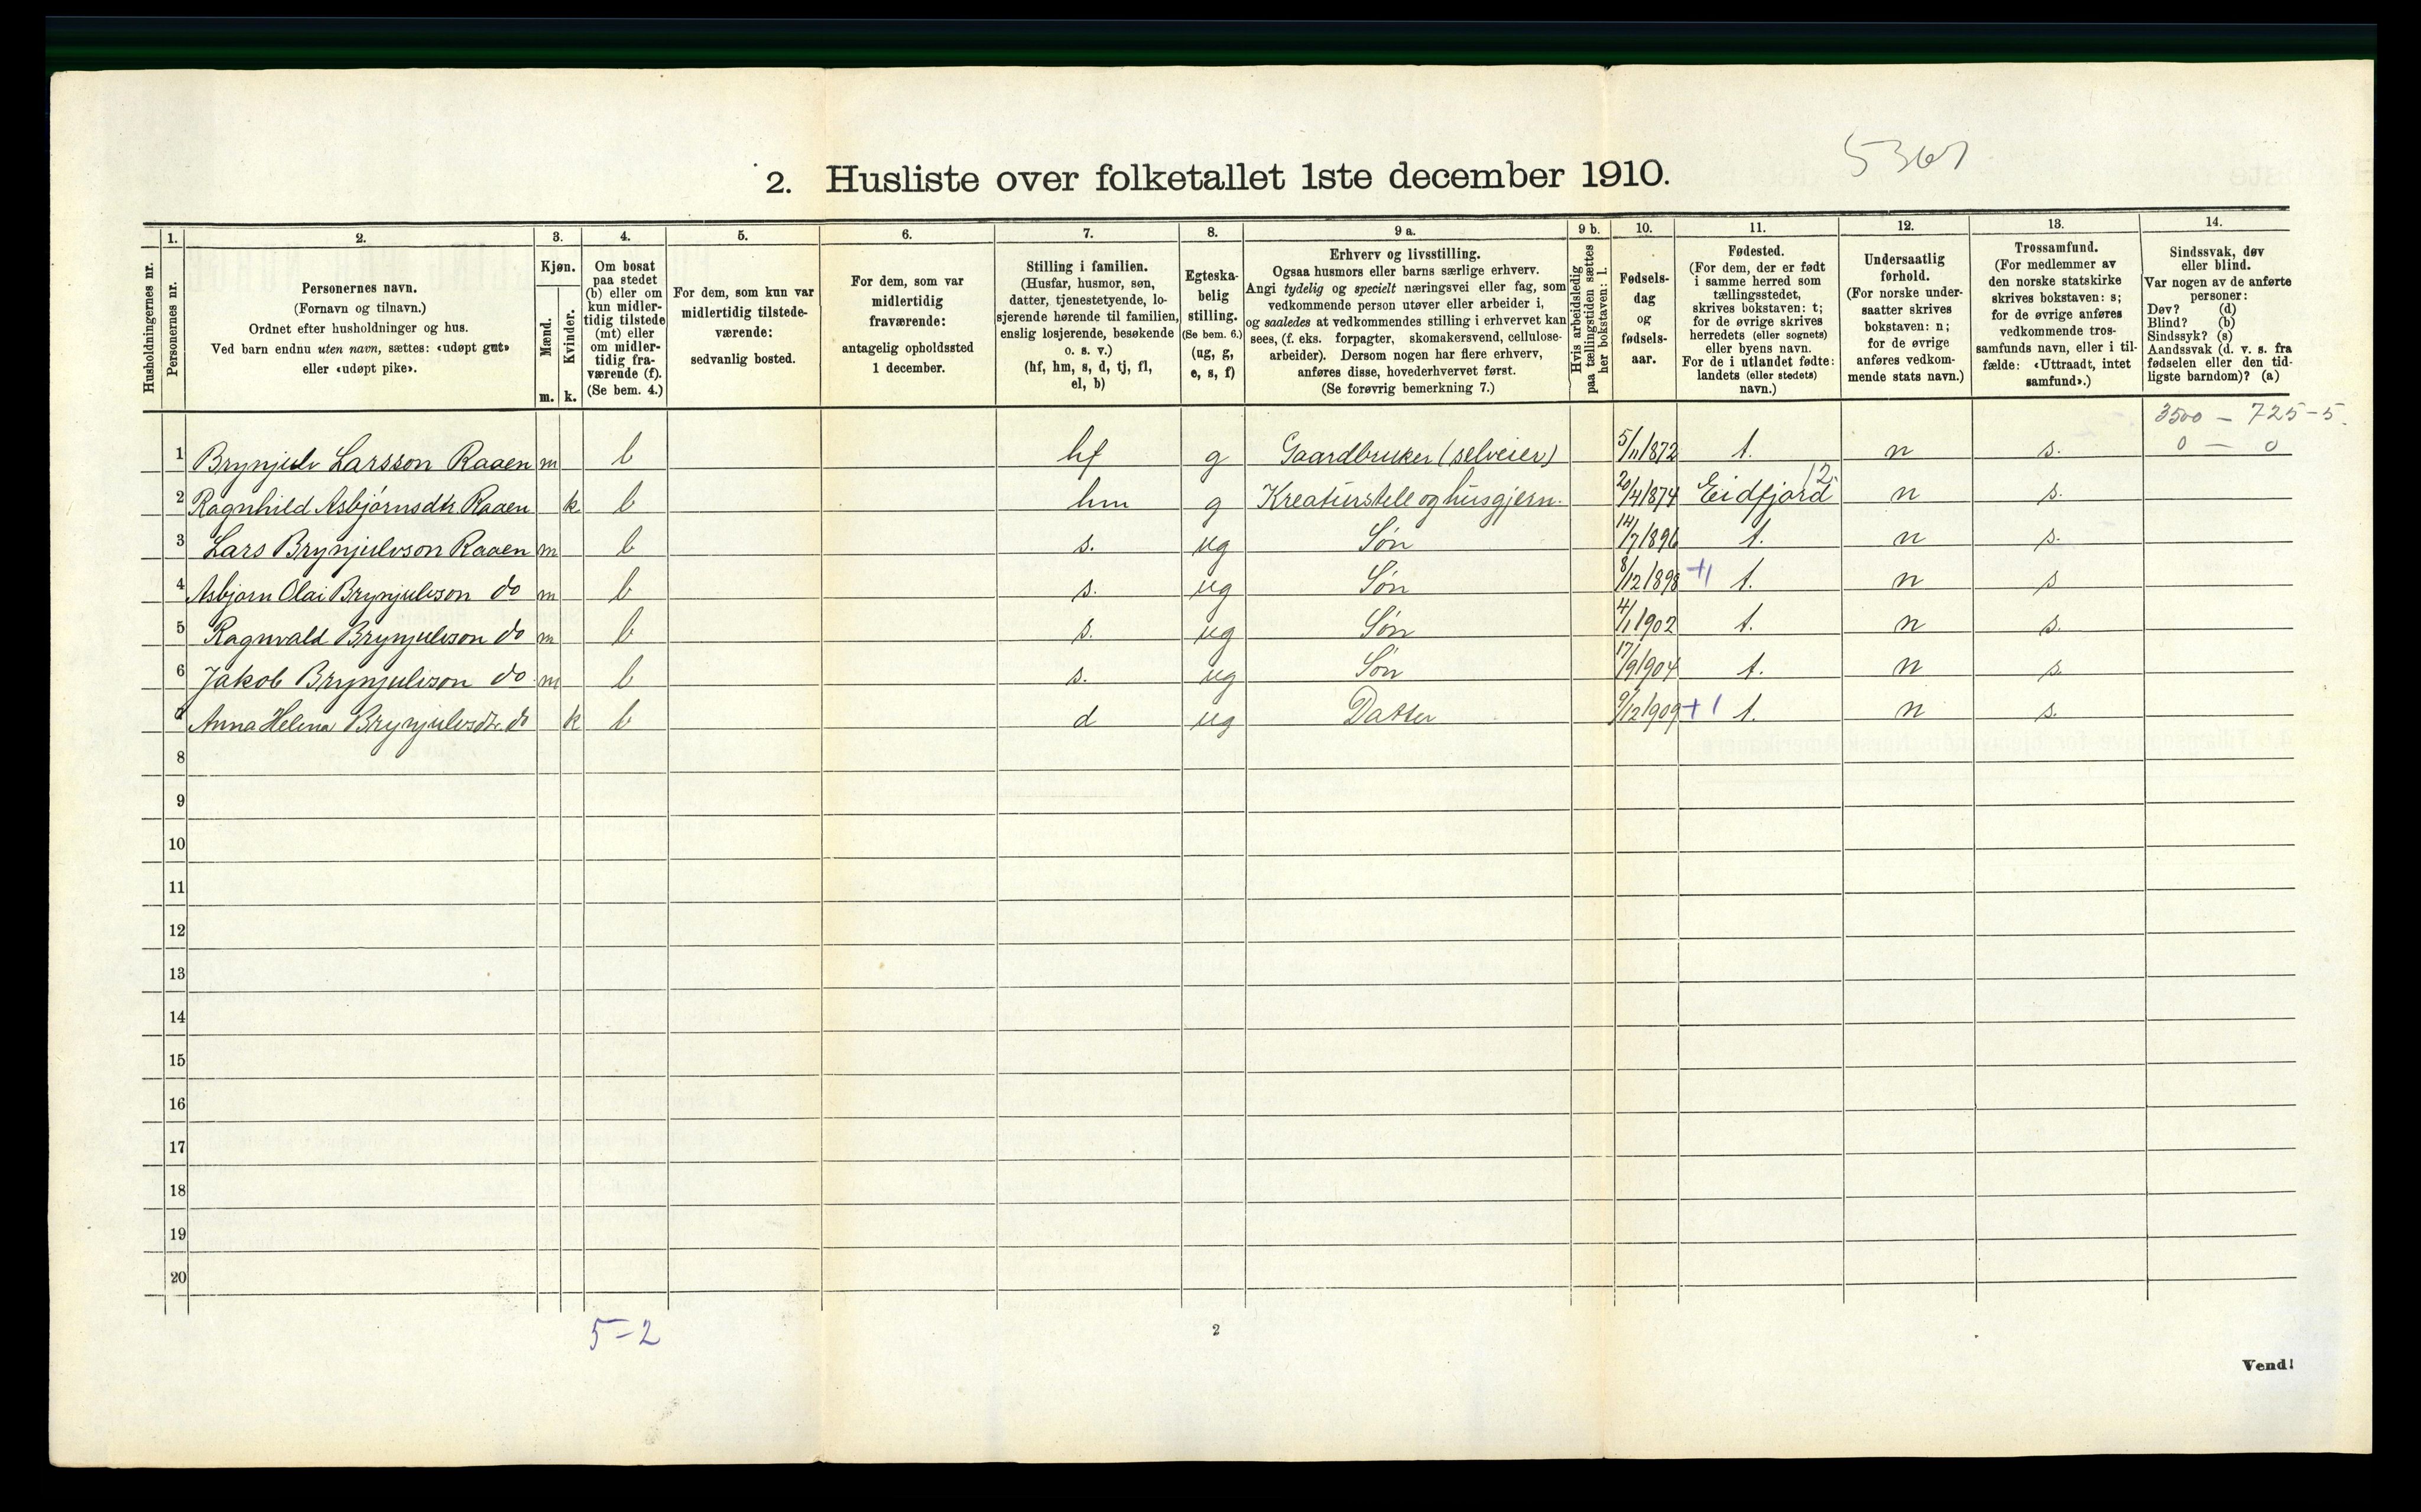 5361
2. Husliste over folketallet 1ste december 1910.
1. 2. 3. 4. 5. 6. 7. 8. 9 a. 9 b. 10. 11. 12. 13. 14.
Husholdningernes nr.
Personernes nr.
Personernes navn.
(Fornavn og tilnavn.)
Ordnet efter husholdninger og hus.
Ved barn endnu uten navn, sættes: «udøpt gut»
eller «udøpt pike».
Kjøn.
Mænd.
Kvinder.
m. k.
Om bosat
paa stedet
(b) eller om
kun midler-
tidig tilstede
(mt) eller
om midler-
tidig fra-
værende (f).
(Se bem. 4.)
For dem, som kun var
midlertidig tilstede-
værende:
sedvanlig bosted.
For dem, som var
midlertidig
fraværende:
antagelig opholdssted
1 december.
Stilling i familien.
(Husfar, husmor, søn,
datter, tjenestetyende, lo-
sjerende hørende til familien,
enslig losjerende, besøkende
o. s. v.)
(hf, hm, s, d, tj, fl,
el, b)
Egteska-
belig
stilling.
(Se bem. 6.)
(ug, g,
e, s, f)
Erhverv og livsstilling.
Ogsaa husmors eller barns særlige erhverv.
Angi tydelig og specielt næringsvei eller fag, som
vedkommende person utøver eller arbeider i,
og saaledes at vedkommendes stilling i erhvervet kan
sees, (f. eks. forpagter, skomakersvend, cellulose-
arbeider). Dersom nogen har flere erhverv,
anføres disse, hovederhvervet først.
(Se forøvrig bemerkning 7.)
Hvis arbeidsledig
paa tællingstiden sættes
her bokstaven: l.
Fødsels-
dag
og
fødsels-
aar.
Fødested.
(For dem, der er født
i samme herred som
tællingsstedet,
skrives bokstaven: t;
for de øvrige skrives
herredets (eller sognets)
eller byens navn.
For de i utlandet fødte:
landets (eller stedets)
navn.)
Undersaatlig
forhold.
(For norske under-
saatter skrives
bokstaven: n;
for de øvrige
anføres vedkom-
mende stats navn.)
Trossamfund.
(For medlemmer av
den norske statskirke
skrives bokstaven: s;
for de øvrige anføres
vedkommende tros-
samfunds navn, eller i til-
fælde: «Uttraadt, intet
samfund».)
Sindssvak, døv
eller blind.
Var nogen av de anførte
personer:
Døv? (d)
Blind? (b)
Sindssyk? (s)
Aandssvak (d. v. s. fra
fødselen eller den tid-
ligste barndom)? (a)
3500 — 725-5.
1 Brynjulv Larsson Raaen m b hf g Gaardbruker (selveier) 5/11 1872 t. n s. 0 — 0
2 Ragnhild Asbjørnsdtr. Raaen k b hm g Kreaturstell og husgjern. 20/4 1874 Eidfjord 12 n s.
3 Lars Brynjulvson Raaen m b s. ug Søn 14/7 1896 t. n s.
4 Asbjørn Olai Brynjulvson do m b s. ug Søn 8/12 1898 +1 t. n s
5 Ragnvald Brynjulvson do m b s. ug Søn 4/1 1902 t. n s.
6 Jakob Brynjulvson do m b s. ug Søn 17/9 1904 t. n s.
7 Anna Helena Brynjulvsdtr. do k b d ug Datter 9/12 1909 +1 t. n s.
8
9
10
11
12
13
14
15
16
17
18
19
20
5-2
2
Vend!